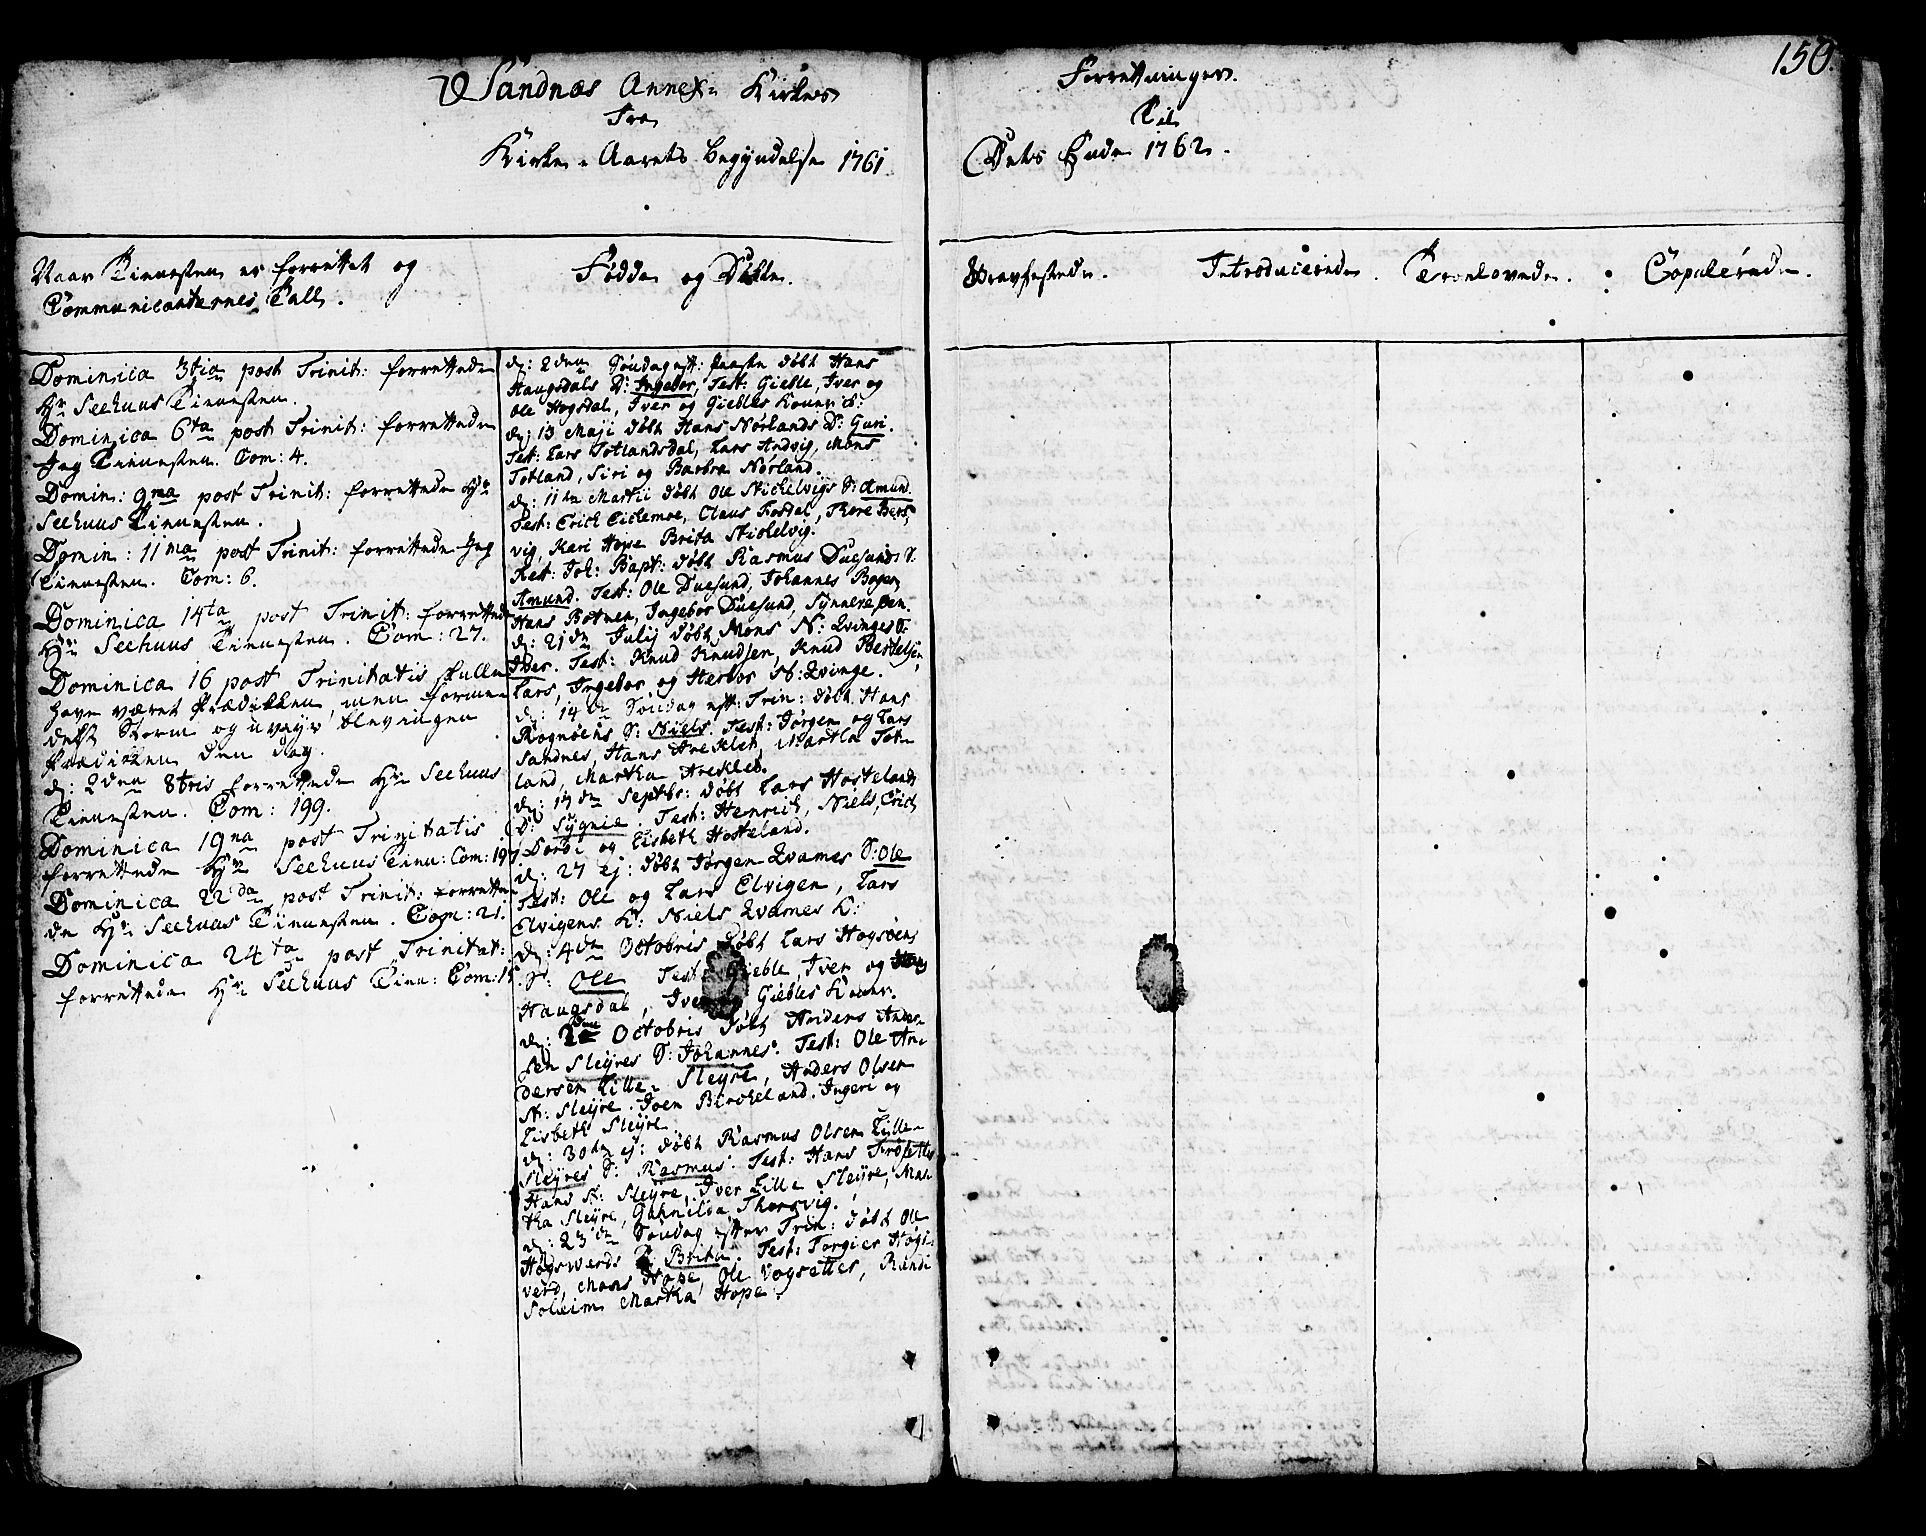 Sandnæs Annex- Kirkes
Fra
Kirke-Aarets begyndelse 1761
Forretninger.
Til
Dets Ende 1762.
150.
Naar Tienesten er forrettet og
Communicanternes Tall.
Fødde og Døbte.
Gravfestede.
Introducerede.
Troelovede.
Copulerede.
Dominica 3tia post Trinit: forrettede
Hr Seehuus Tienesten.
Dominica 6ta post Trinit: forrettede
Jeg Tienesten. Com: 4.
Domin: 9na post Trinit: forrettede Hr
Seehuus Tienesten.
Domin: 11ma post Trinit: forrettede Jeg
Tienesten. Com: 6.
Dominica 14ta post Trinit: forrettede
Hr Seehuus Tienesten. Com: 27.
Dominica 16 post Trinitatis skulle
have været Prædiken, men forme-
delst Storm og uveyr blev ingen
Prædiken den dag.
d: 2den 8bris forrettede Hr Seehuus
Tienesten. Com: 199.
Dominica 19na post Trinitatis
forrettede Hr Seehuus Tien: Com: 197.
Dominica 22da post Trinit: forrette-
de Hr Seehuus Tienesten. Com: 21.
Dominica 24ta post Trinitat:
forrettede Hr Seehuus Tien: Com: 15.
d: 2den Søndag eft: Paaske døbt Hans
Haugsdals D: Ingebor, Test: Gieble, Iver og
Ole Hogsdal, Iver og Giebles Koner
d: 13 Maji døbt Hans Nørlands D: Guri.
Test: Lars Totlandsdal, Lars Andvig, Mons
Totland, Siri og Barbra Nørland.
d: 11te Martii døbt Ole Stichelvigs S: Amund.
Test: Erich Eichemoe, Claus Fosdal, Thore Bers
vig, Kari Hope Brita Stichelvig.
Fest: Joh: Bapt: døbt Rasmus Duesunds S:
Amund. Test: Ole Duesund, Johannes Bogen
Hans Botnen, Ingebor Duesund, Synneve
d: 21de Julij døbt Mons N: Qvinges S:
Iver. Test: Knud Knudsen, Knud Bertelsen,
Lars, Ingebor og Herbor N: Qvinge.
d: 14de Søndag eft: Trin: døbt Hans
Rognøens S: Niels. Test: Jørgen og Lars
Sandnes, Hans Areklet, Martha Tot-
land, Martha Arekled.
d: 14de Septbr: døbt Lars Hostelands
D: Sygnie. Test: Henrich, Niels, Erich
Dordi og Lisbeth Hosteland.
d: 27 ej: døbt Jørgen Qvames S: Ole
Test: Ole og Lars Elvigen, Lars
Elvigens K: Niels Qvames K:
d: 4de Octobris døbt Lars Hogsøens
S: Ole Test: Gieble, Iver og
Haugsdal, Iver og Giebles Koner.
d: Octobris døbt Anders Ander-
sen Sleyres S: Johannes. Test: Ole An-
dersen Lille- Sleyre, Anders Olsen
St: Sleyre. Joen Birckeland. Ingeri og
Lisbeth Sleyre.
d: 30te ej: døbt Rasmus Olsen Lille-
Sleyres S: Rasmus. Test: Hans Frøsettes
Hans St: Sleyre, Iver Lille Sleyre, Mar-
tha Sleyre, Gunnilda Thorsvig.
d: 23de Søndag efter Trin: døbt Ole
Høgswerds D: Brita. Test: Torgier Høgs-
verd, Mons Hope, Ole Vogsetter, Randi
Soleim Martha Hope.